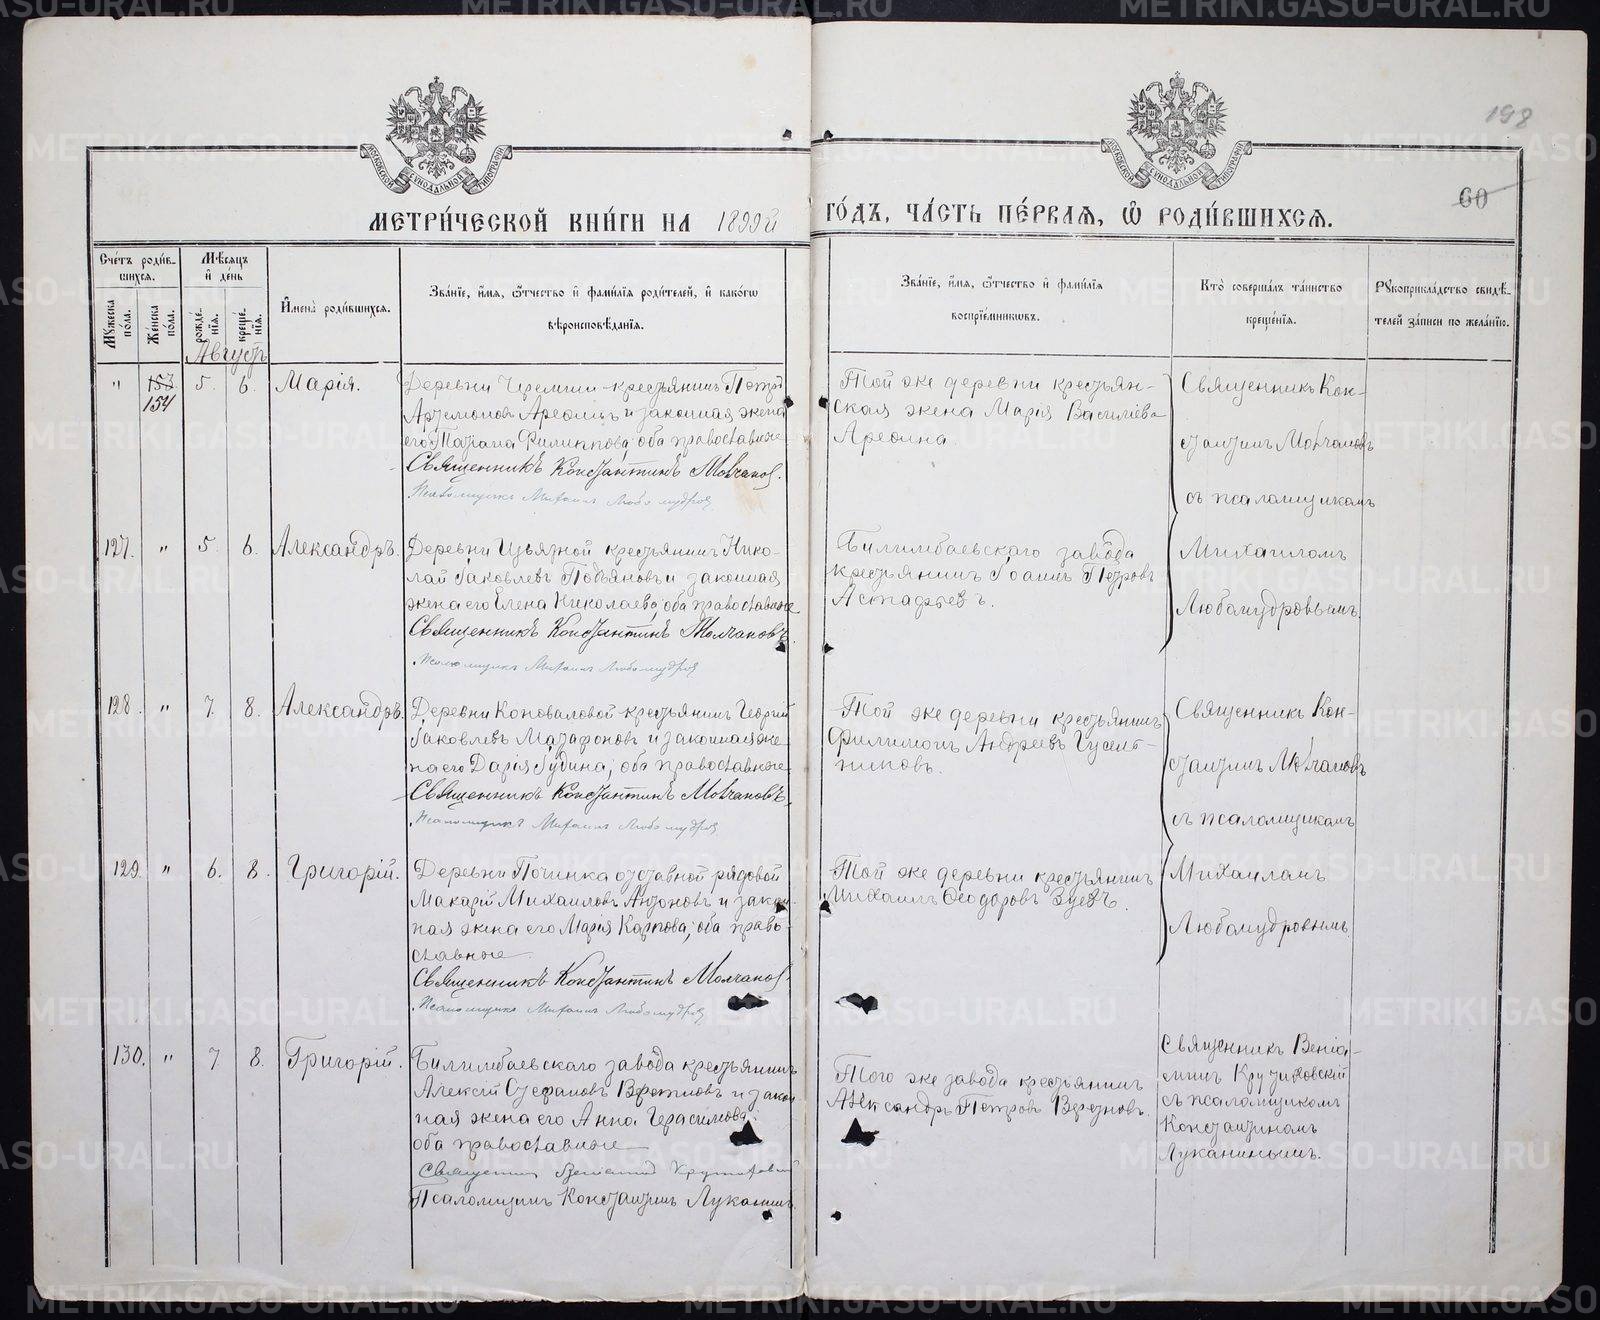 METRIKI.GASO-URAL.RU
198
60
МОСКОВСКОЙ СѴНОДАЛЬНОЙ ТИПОГРАФІИ
МОСКОВСКОЙ СѴНОДАЛЬНОЙ ТИПОГРАФІИ
МЕТРИ́ЧЕСКОЙ КНИ́ГИ НА 1899й ГО́ДЪ, ЧА́СТЬ ПЕ́РВАѦ, Ѽ РОДИ́ВШИХСѦ.
Сче́тъ роди́вшихсѧ.
Мꙋ́жеска по́ла.
Же́нска по́ла.
Мѣ́сѧцъ и҆ де́нь
рожде́нїѧ.
креще́нїѧ.
И҆мена̀ роди́вшихсѧ.
Зва́нїе, и҆́мѧ, ѻ҆́тчество и҆ фами́лїѧ роди́телей, и҆ како́гѡ
вѣроисповѣ́данїѧ.
Зва́нїе, и҆́мѧ, ѻ҆́тчество и҆ фами́лїѧ
воспрїе́мникѡвъ.
Кто̀ соверша́лъ та́инство
креще́нїѧ.
Рꙋкоприкла́дство свидѣ́телей за́писи по жела́нїю.
Августъ
" 153 154 5. 6. Марія.
Деревни Черемши крестьянинъ Петръ
Артемоновъ Арефинъ и законная жена
его Татіана Филиппова; оба православные
Священникъ Константинъ Молчановъ.
Псаломщикъ Михаилъ Любомудровъ
Той же деревни крестьян-
ская жена Марія Василіева
Арефина.
Священникъ Кон-
стантинъ Молчановъ
съ псаломщикомъ
Михаиломъ
Любомудровымъ.
127. " 5. 6. Александръ.
Деревни Извязной крестьянинъ Нико-
лай Іаковлевъ и законная
жена его Елена Николаева; оба православные
Священникъ Константинъ Молчановъ.
Псаломщикъ Михаилъ Любомудровъ
Билимбаевскаго завода
крестьянинъ Іоаннъ Петровъ
Астафьевъ.
128. " 7. 8. Александръ.
Деревни Коноваловой крестьянинъ Георгій
Іаковлевъ Мазафоновъ и законная же-
на его Дарія Іудина; оба православные
Священникъ Константинъ Молчановъ.
Псаломщикъ Михаилъ Любомудровъ
Той же деревни крестьянинъ
Филимонъ Андреевъ
никовъ.
Священникъ Кон-
стантинъ Молчановъ
съ псаломщикомъ
Михаиломъ
Любомудровымъ
129. " 6. 8. Григорій.
Деревни Починка отставной рядовой
Макарій Михаиловъ Антоновъ и закон-
ная жена его Марія Карпова; оба право-
славные
Священникъ Константинъ Молчановъ.
Псаломщикъ Михаилъ Любомудровъ
Той же деревни крестьянинъ
Михаилъ Ѳеодоровъ Зуевъ.
130. " 7 8. Григорій.
Билимбаевскаго завода крестьянинъ
Алексій Стефановъ и закон-
ная жена его Анна Герасимова;
оба православные
Священникъ Веніаминъ
Псаломщикъ Константинъ Луканинъ
Того же завода крестьянинъ
Александръ Петровъ
Священникъ Веніа-
минъ
съ псаломщикомъ
Константиномъ
Луканинымъ.